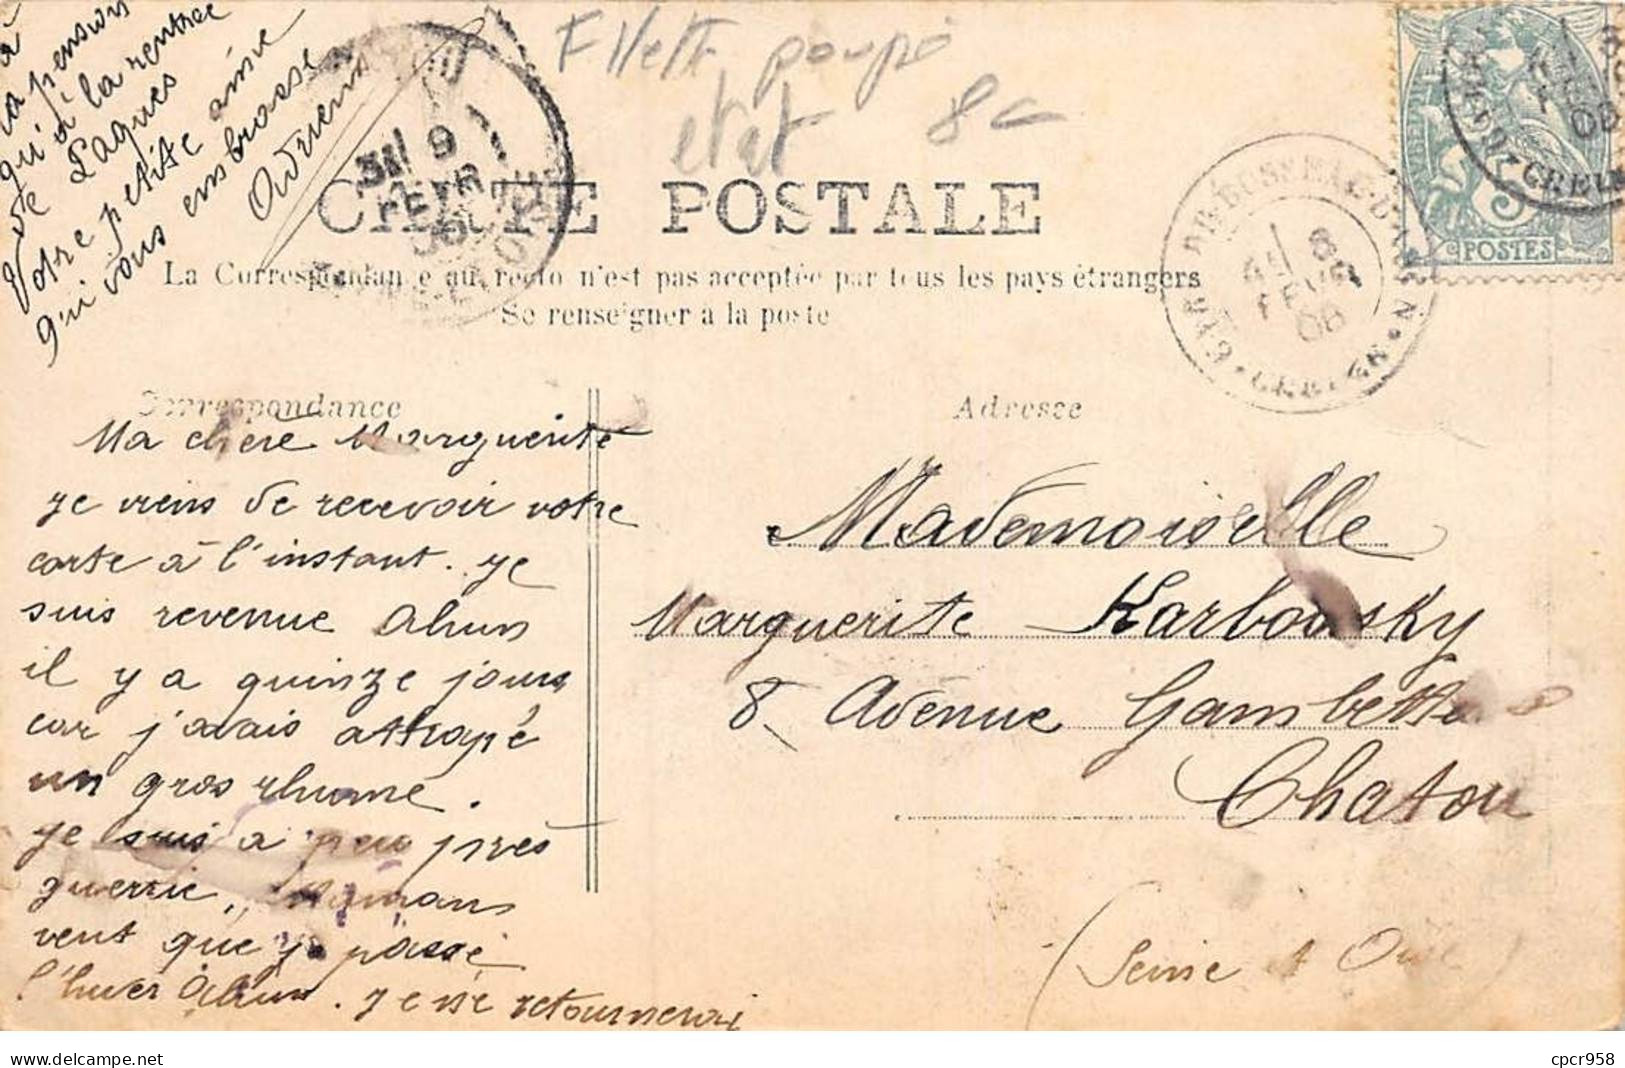 Fillette poupé
etat 8€
CARTE POSTALE
La Correspondance au recto n'est pas acceptée par tous les pays étrangers
Se renseigner à la poste
Correspondance
Adresse
Ma chère Marguerite
je viens de recevoir votre
carte à l'instant. je
suis revenue Ahun
il y a quinze jours
car j'avais attrapé
un gros rhume.
je suis a peu près
guerrie, Maman
veut que je passe
l'hiver Ahun. je ne retournerai
à
la pension
qu'à la rentrée
de Paques
Votre petite amie
qui vous embrasse
Mademoiselle
Marguerite Karbowsky
8 Avenue Gambetta
Chatou
(Seine et Oise)
9
FEVR
8
FEVR
06
5c
POSTES
06
cpcr958